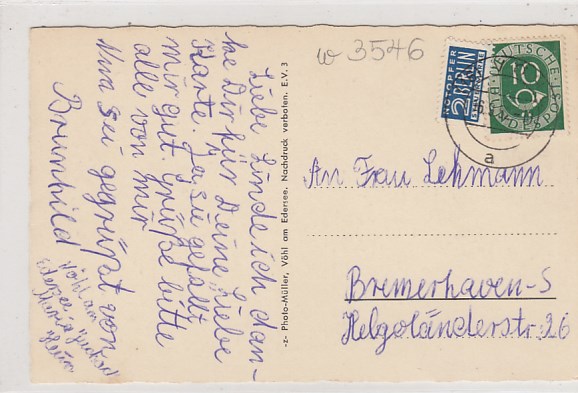 Liebe Linde ich dan-
ke Dir für Deine Liebe
Karte. Ja, sie gefällt
mir gut. Grüße bitte
alle von mir
Nun sei gegrüßt von
Brunhild
Vöhl am
Edersee
-z- Photo-Müller, Vöhl am Edersee. Nachdruck verboten. E.V. 3
w 3546
NOTOPFER
2 BERLIN
STEUERMARKE
DEUTSCHE
BUNDESPOST
10
a
An Frau Lehmann
Bremerhaven-S
Helgoländerstr. 26